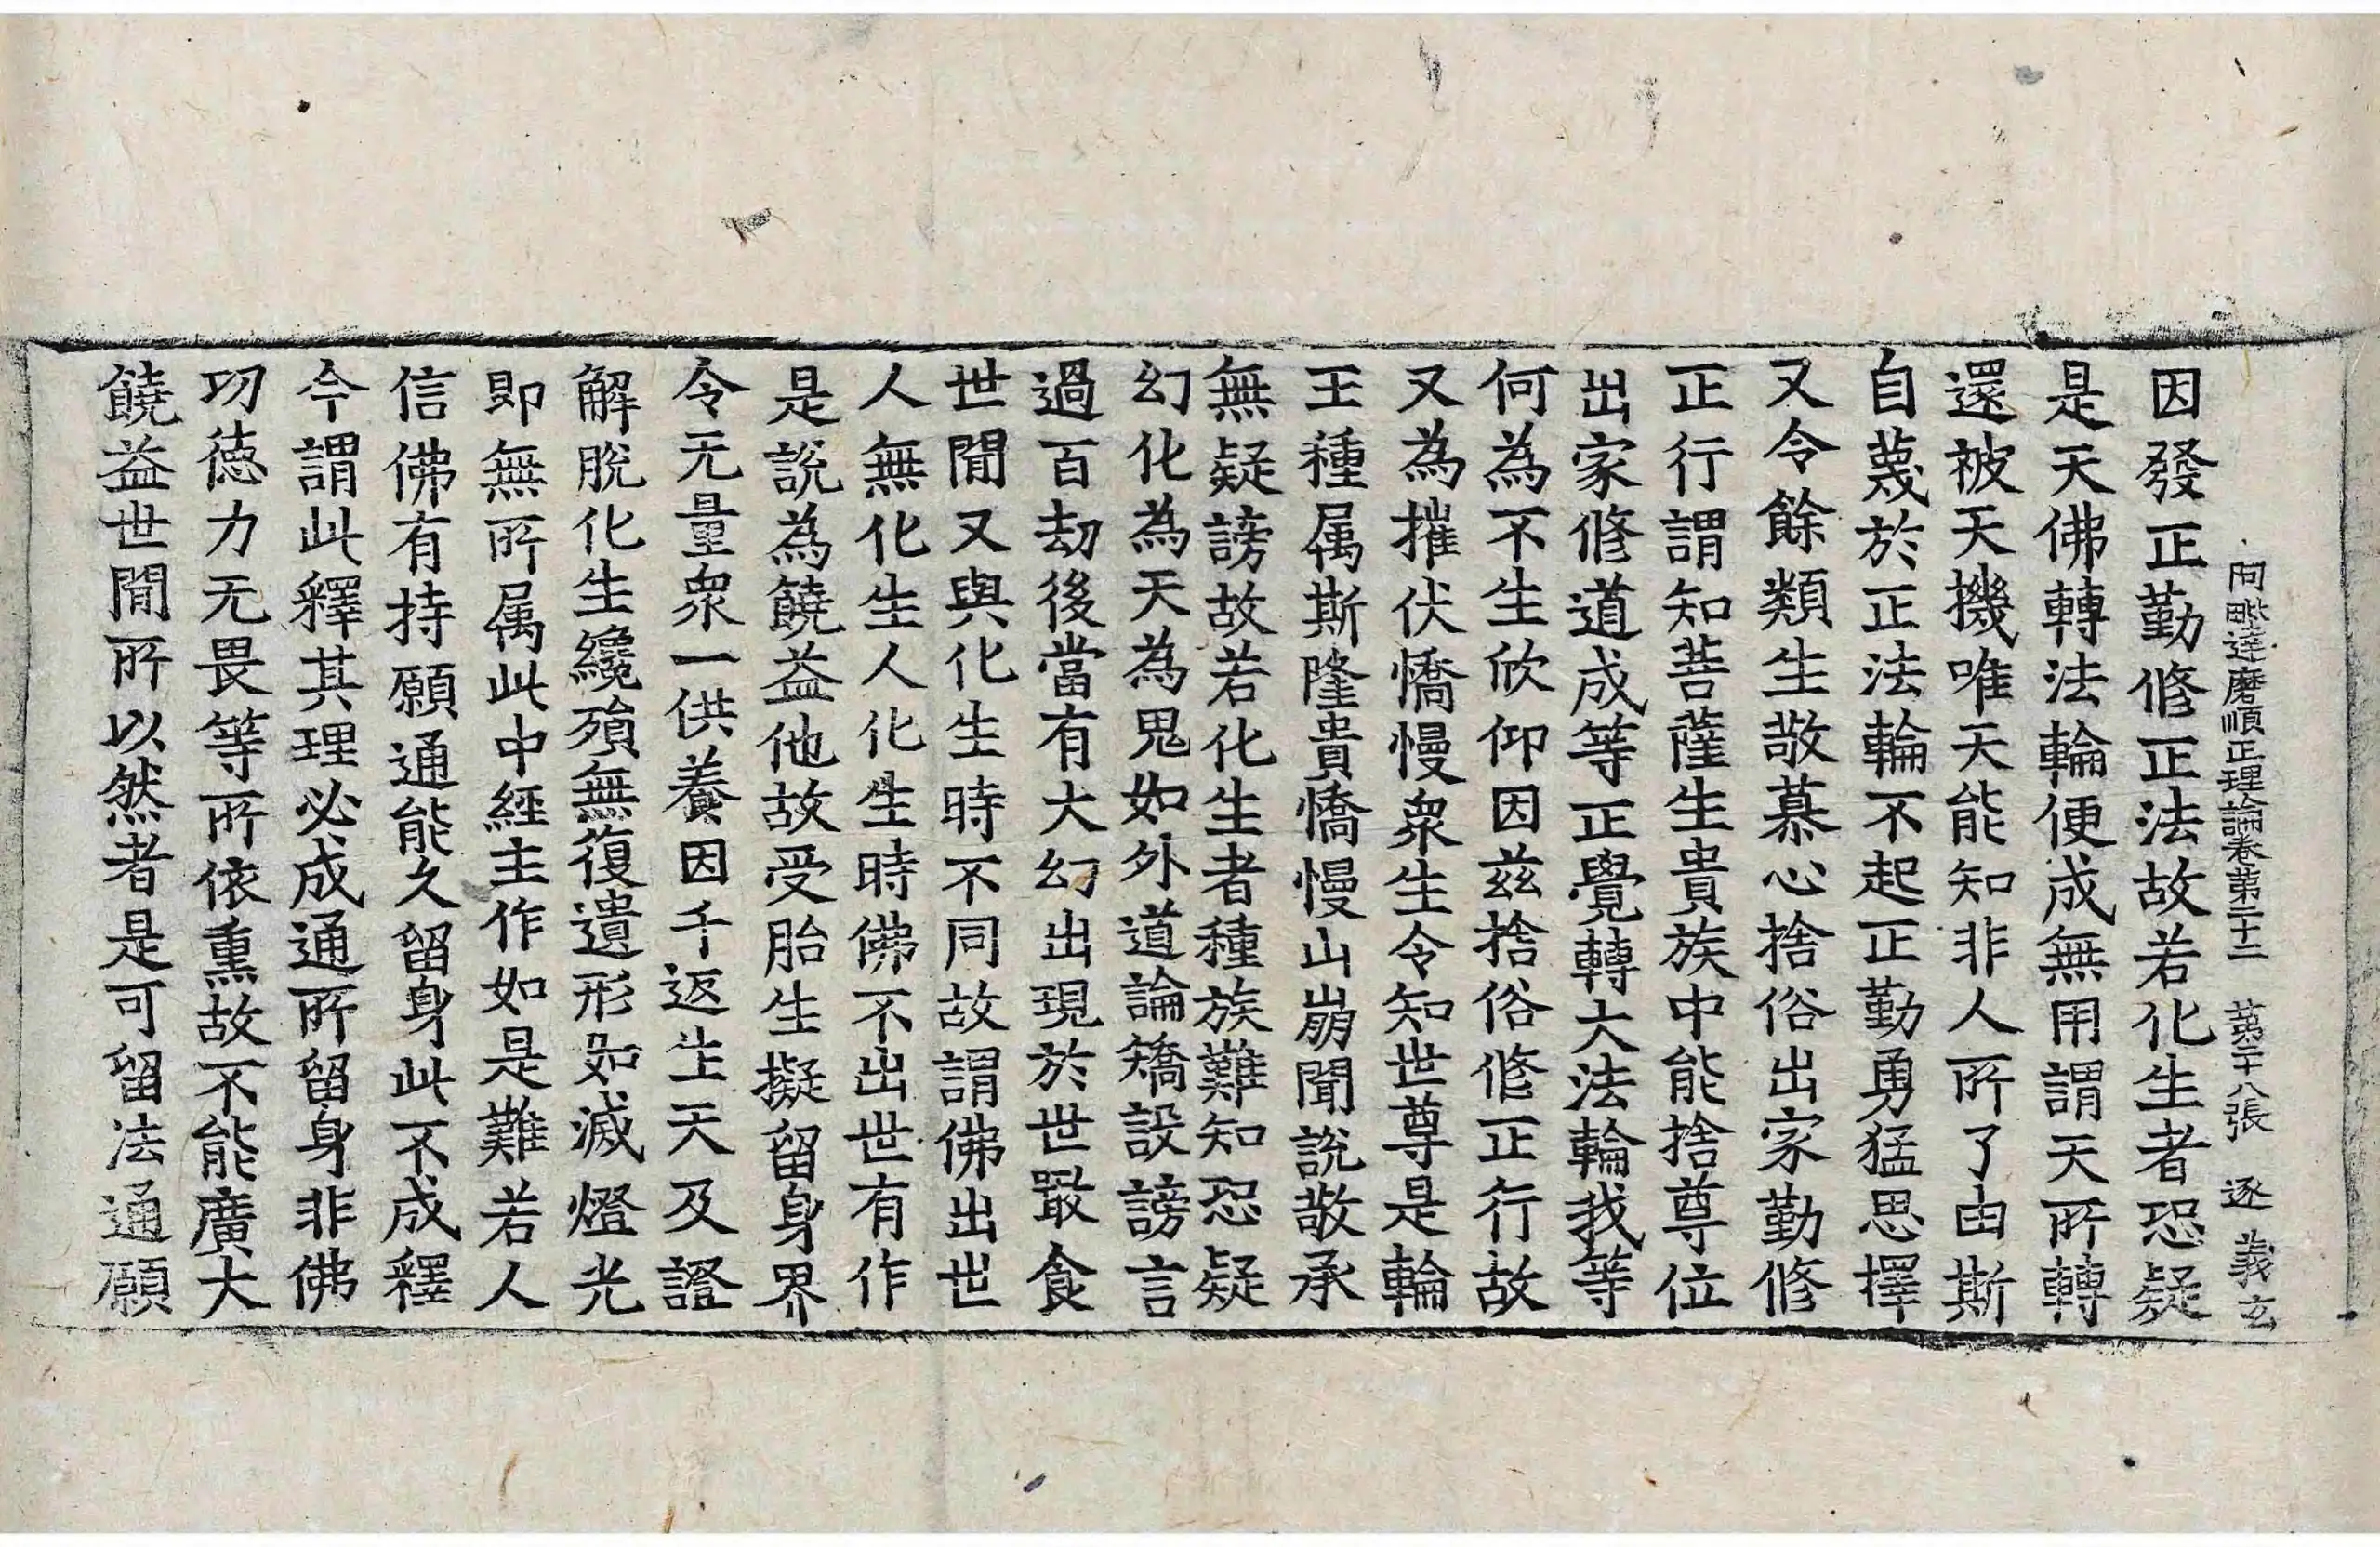 阿毗達磨順正理論卷第二十二　第二十八張　逐　義玄
因發正勤修正法故若化生者恐疑
是天佛轉法輪便成無用謂天所轉
還被天機唯天能知非人所了由斯
自蔑於正法輪不起正勤勇猛思擇
又令餘類生敬慕心捨俗出家勤修
正行謂知菩薩生貴族中能捨尊位
出家修道成等正覺轉大法輪我等
何為不生欣仰因茲捨俗修正行故
又為摧伏憍慢衆生令知世尊是輪
王種属斯隆貴憍慢山崩聞說敬承
無疑謗故若化生者種族難知恐疑
幻化為天為鬼如外道論矯設謗言
過百劫後當有大幻出現於世噉食
世閒又與化生時不同故謂佛出世
人無化生人化生時佛不出世有作
是說為饒益他故受胎生擬留身界
令无量衆一供養因千返生天及證
解脫化生纔殞無復遺形如滅燈光
即無所属此中經主作如是難若人
信佛有持願通能久留身此不成釋
今謂此釋其理必成通所留身非佛
功德力无畏等所依熏故不能廣大
饒益世閒所以然者是可留法通願